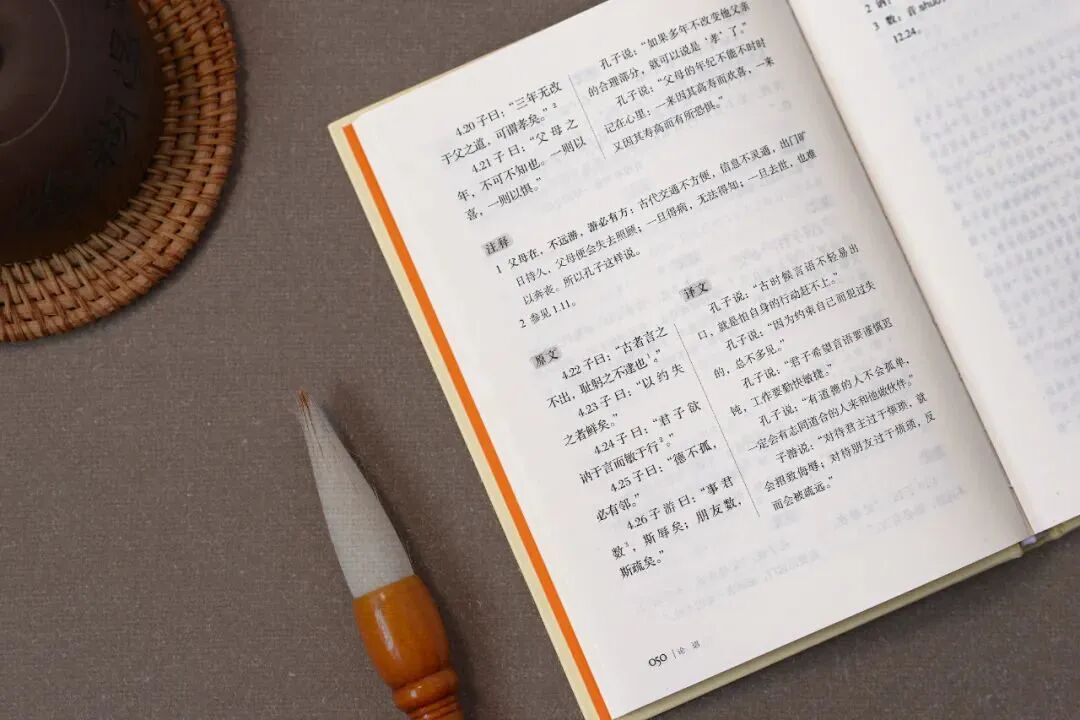 4.20 子曰：“三年无改
于父之道，可谓孝矣。”²
4.21 子曰：“父母之
年，不可不知也。一则以
喜，一则以惧。”
孔子说：“如果多年不改变他父亲
的合理部分，就可以说是‘孝’了。”
孔子说：“父母的年纪不能不时时
记在心里：一来因其高寿而欢喜，一来
又因其寿高而有所恐惧。”
注释
1 父母在，不远游，游必有方：古代交通不方便，信息不灵通，出门旷
日持久，父母便会失去照顾；一旦得病，无法得知；一旦去世，也难
以奔丧。所以孔子这样说。
2 参见 1.11。
原文
4.22 子曰：“古者言之
不出，耻躬之不逮也¹。”
4.23 子曰：“以约失
之者鲜矣。”
4.24 子曰：“君子欲
讷于言而敏于行²。”
4.25 子曰：“德不孤，
必有邻。”
4.26 子游曰：“事君
数³，斯辱矣；朋友数，
斯疏矣。”
译文
孔子说：“古时候言语不轻易出
口，就是怕自身的行动赶不上。”
孔子说：“因为约束自己而犯过失
的，总不多见。”
孔子说：“君子希望言语要谨慎迟
钝，工作要勤快敏捷。”
孔子说：“有道德的人不会孤单，
一定会有志同道合的人来和他做伙伴。”
子游说：“对待君主过于烦琐，就
会招致侮辱；对待朋友过于烦琐，反
而会被疏远。”
050 | 论 语
3 数：音 shuò
12.24。